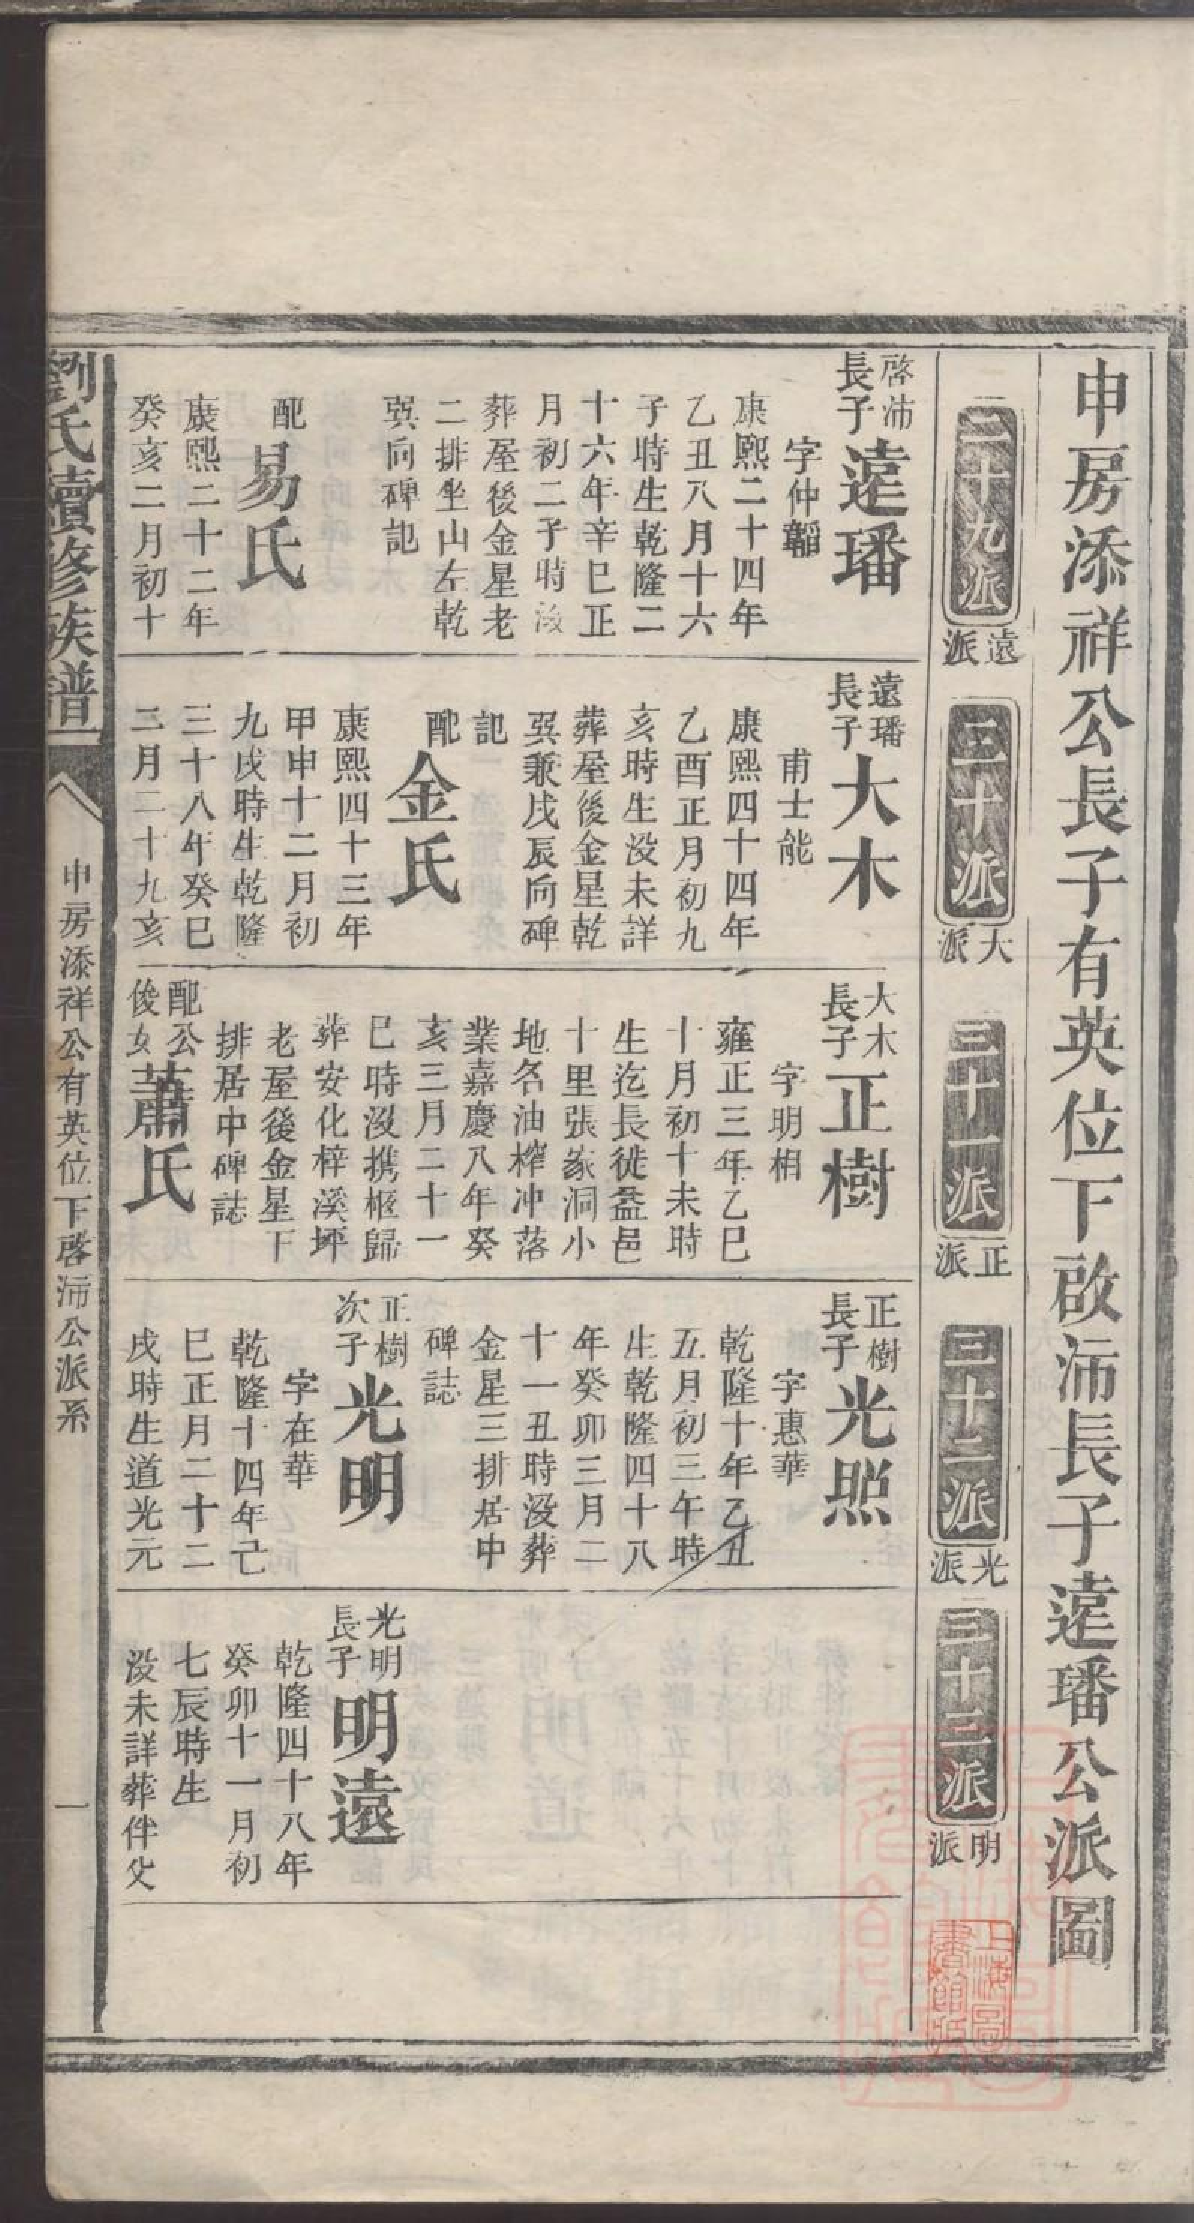 申房添祥公長子有英位下啟沛長子遠璠公派圖
二十九派
遠派
三十派
大派
三十一派
正派
三十二派
光派
三十三派
明派
啓沛
長子
遠璠
字仲韜
康熙二十四年
乙丑八月十六
子時生乾隆二
十六年辛巳正
月初二子時没
葬屋後金星老
二排坐山左乾
巽向碑記
配
易氏
康熙二十二年
癸亥二月初十
遠璠
長子
大木
甫士能
康熙四十四年
乙酉正月初九
亥時生没未詳
葬屋後金星乾
巽兼戌辰向碑
記
配
金氏
康熙四十三年
甲申十二月初
九戌時生乾隆
三十八年癸巳
二月二十九亥
大木
長子
正樹
字明相
雍正三年乙巳
十月初十未時
生迄長徙益邑
十里張家洞小
地名油榨冲落
業嘉慶八年癸
亥三月二十一
巳時没携柩歸
葬安化梓溪坪
老屋後金星下
排居中碑誌
配公
俊女
蕭氏
正樹
長子
光照
字惠華
乾隆十年乙丑
五月初三午時
生乾隆四十八
年癸卯三月二
十一丑時没葬
金星三排居中
碑誌
正樹
次子
光明
字在華
乾隆十四年己
巳正月二十二
戌時生道光元
光明
長子
明遠
乾隆四十八年
癸卯十一月初
七辰時生
没未詳葬伴父
劉氏續修族譜
申房添祥公有英位下啓沛公派系
一
上海圖書館藏